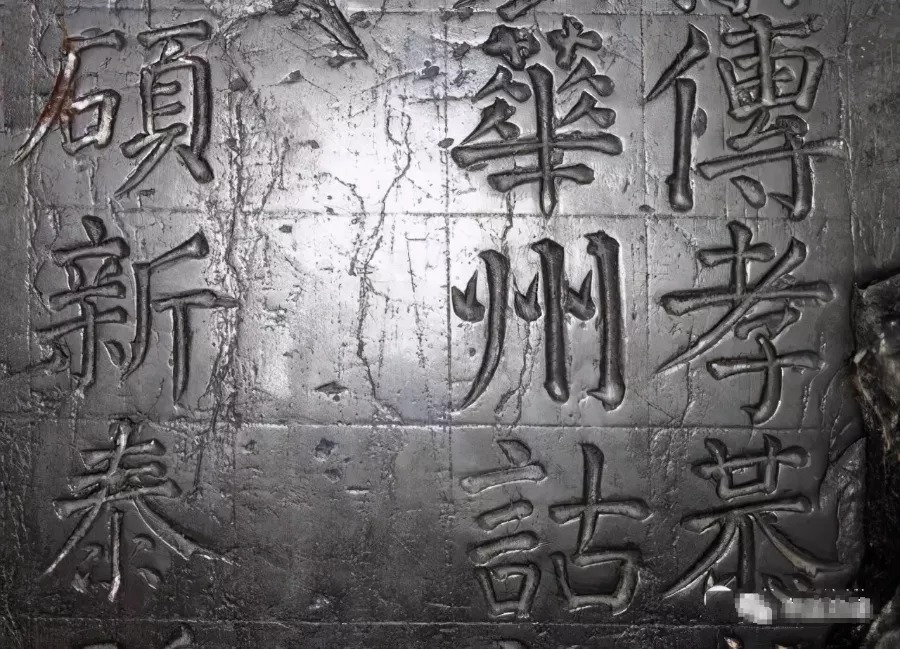 傳孝恭
華州詁
碩新泰